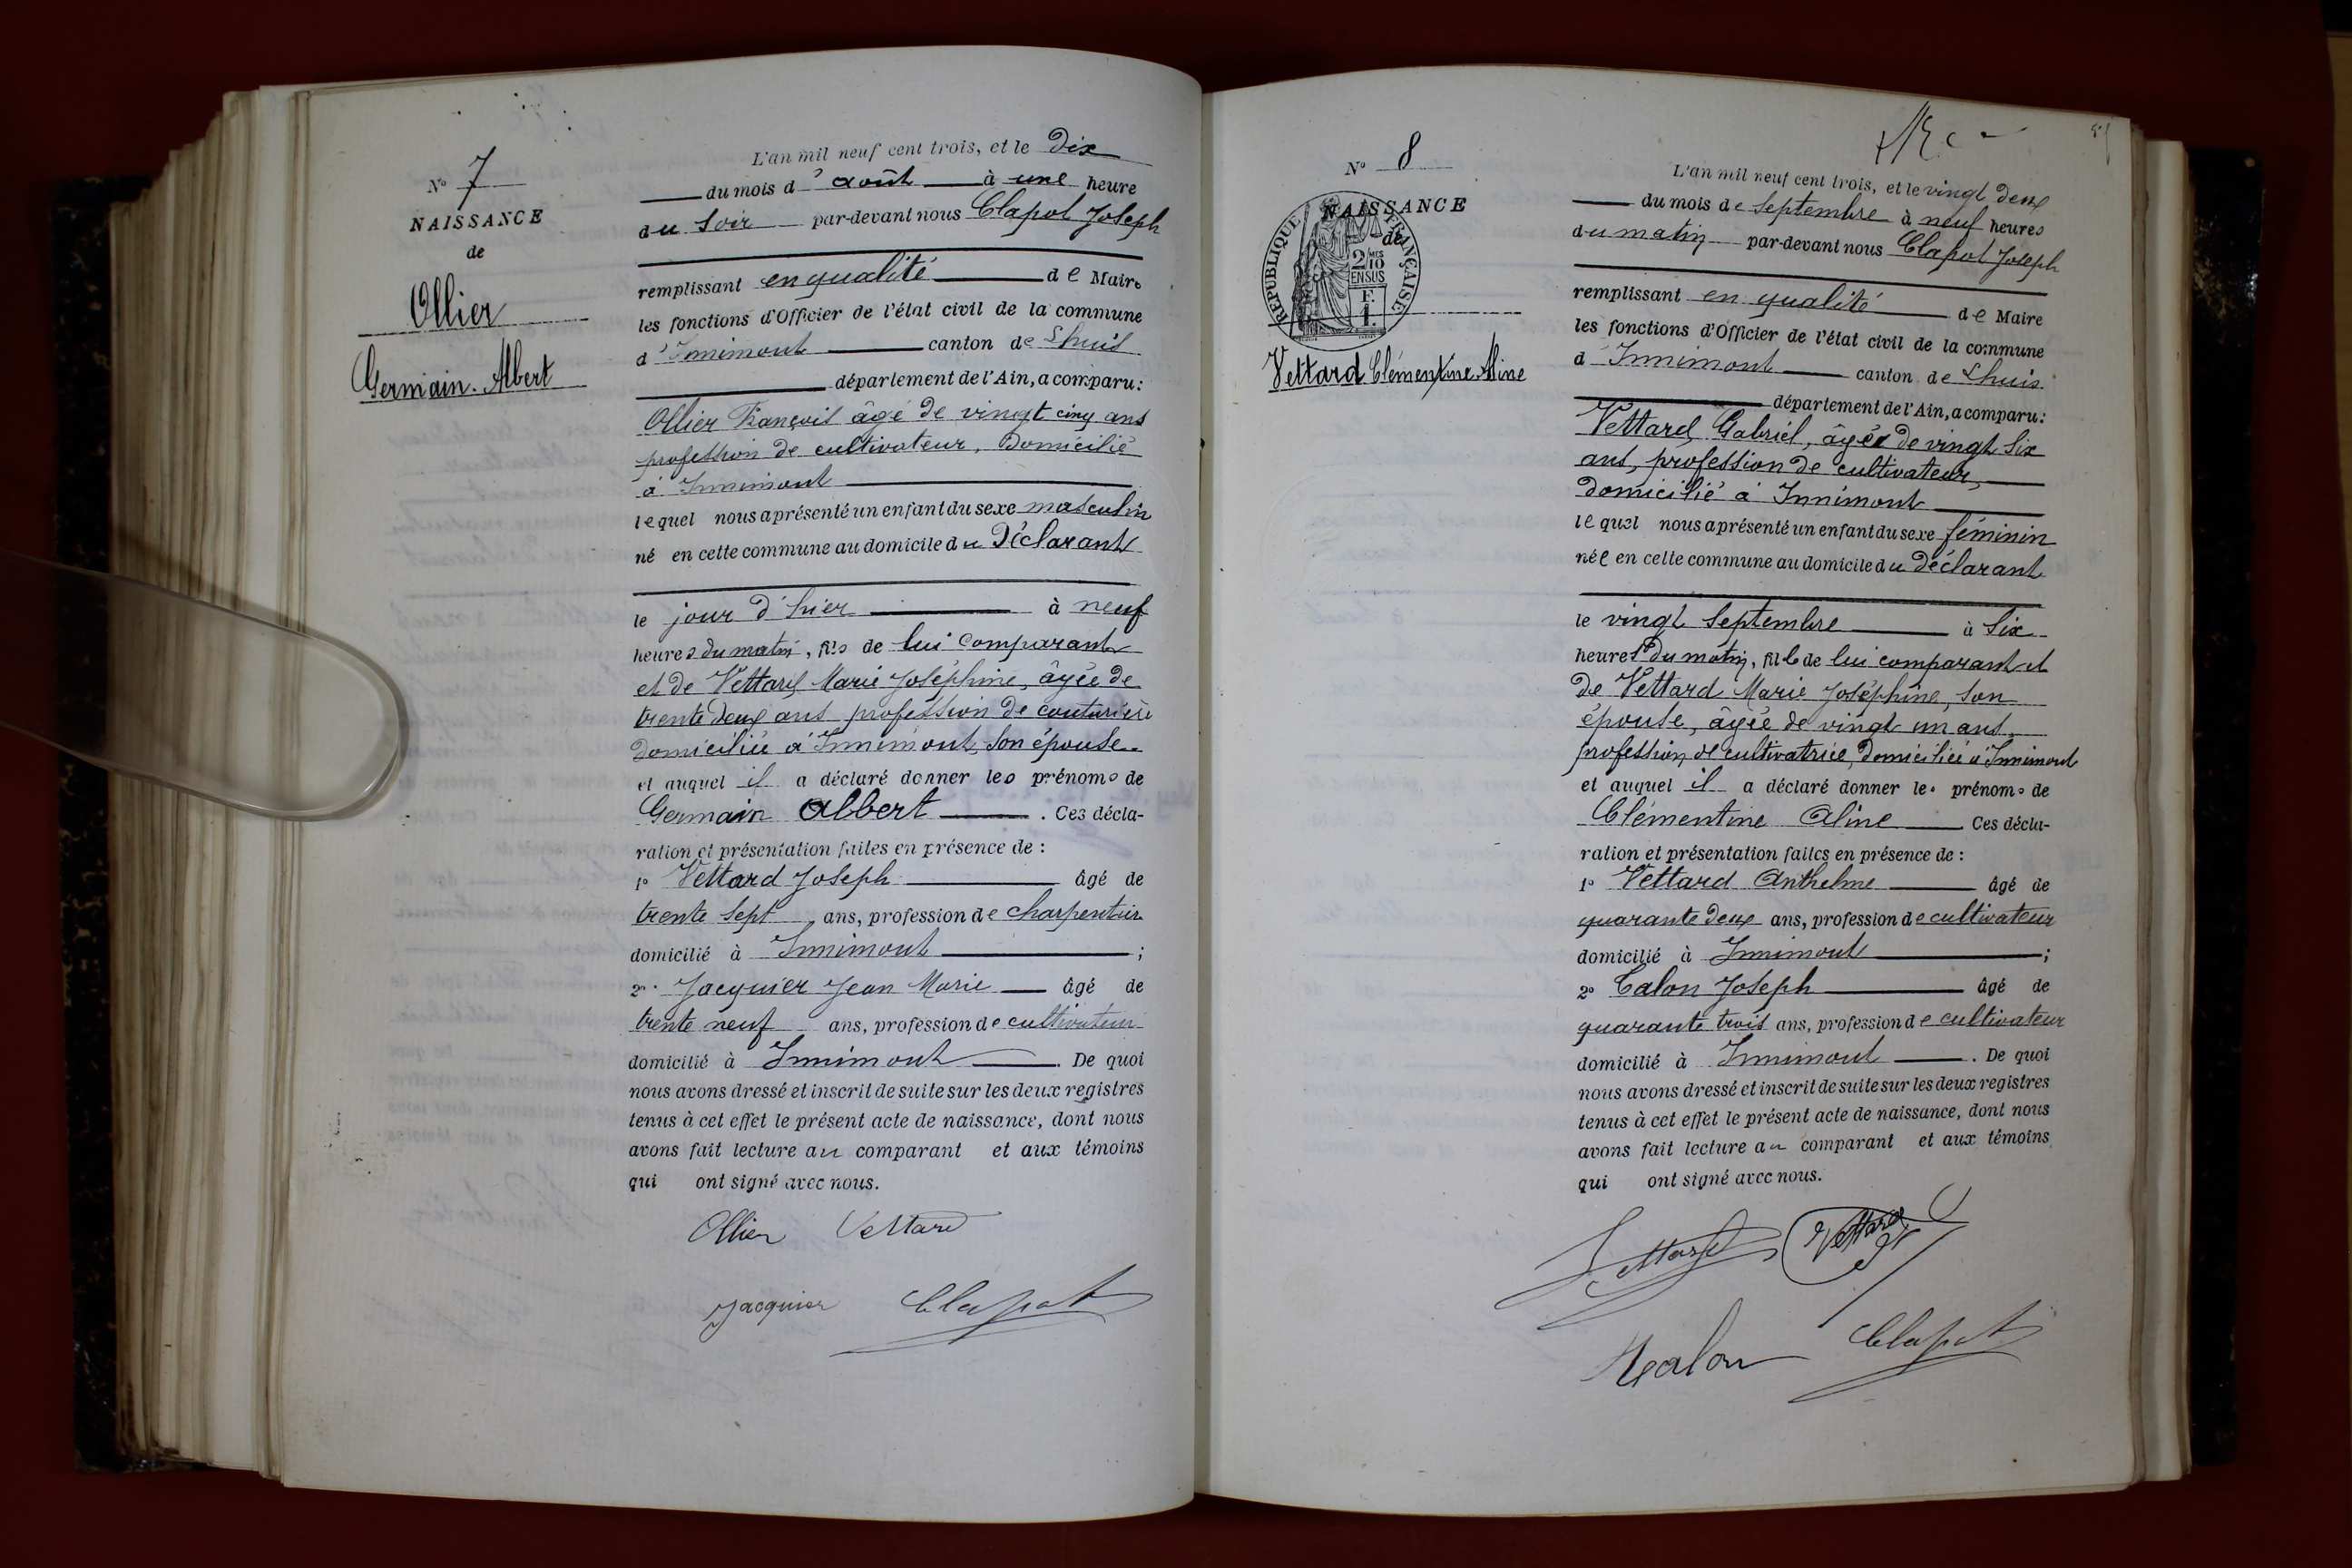 N° 7
NAISSANCE
de
Ollier
Germain-Albert
L'an mil neuf cent trois, et le Dix
du mois d'août à une heure
du soir par-devant nous Clapot Joseph
remplissant en qualité de Maire
les fonctions d'Officier de l'état civil de la commune
d'Innimont canton de Lhuis
département de l'Ain, a comparu:
Ollier François âgé de vingt cinq ans
profession de cultivateur, Domicilié
à Innimont
lequel nous a présenté un enfant du sexe masculin
né en cette commune au domicile du Déclarant
le jour d'hier à neuf
heures du matin, fils de lui comparant
et de Vettard Marie Joséphine, âgée de
trente deux ans profession de couturière
domiciliée à Innimont, son épouse
et auquel il a déclaré donner les prénoms de
Germain Albert. Ces décla-
ration et présentation faites en présence de :
1° Vettard Joseph âgé de
trente sept ans, profession de charpentier
domicilié à Innimont ;
2° Jacquier Jean Marie âgé de
trente neuf ans, profession de cultivateur
domicilié à Innimont. De quoi
nous avons dressé et inscrit de suite sur les deux registres
tenus à cet effet le présent acte de naissance, dont nous
avons fait lecture au comparant et aux témoins
qui ont signé avec nous.
Ollier Vettard
Jacquier Clapot
N° 8
NAISSANCE
de
REPUBLIQUE FRANÇAISE
2/10 MES
EN SUS
F.
1.
Vettard Clémentine-Aline
L'an mil neuf cent trois, et le vingt deux
du mois de septembre à neuf heures
du matin par-devant nous Clapot Joseph
remplissant en qualité de Maire
les fonctions d'Officier de l'état civil de la commune
d'Innimont canton de Lhuis
département de l'Ain, a comparu:
Vettard Gabriel, âgé de vingt six
ans, profession de cultivateur,
domicilié à Innimont
lequel nous a présenté un enfant du sexe féminin
née en cette commune au domicile du déclarant
le vingt septembre à six
heures du matin, fille de lui comparant et
de Vettard Marie Joséphine, son
épouse, âgée de vingt un ans,
profession de cultivatrice, domiciliée à Innimont
et auquel il a déclaré donner les prénoms de
Clémentine Aline Ces décla-
ration et présentation faites en présence de :
1° Vettard Anthelme âgé de
quarante deux ans, profession de cultivateur
domicilié à Innimont ;
2° Calon Joseph âgé de
quarante trois ans, profession de cultivateur
domicilié à Innimont. De quoi
nous avons dressé et inscrit de suite sur les deux registres
tenus à cet effet le présent acte de naissance, dont nous
avons fait lecture au comparant et aux témoins
qui ont signé avec nous.
Vettard Vettard
Calon Clapot